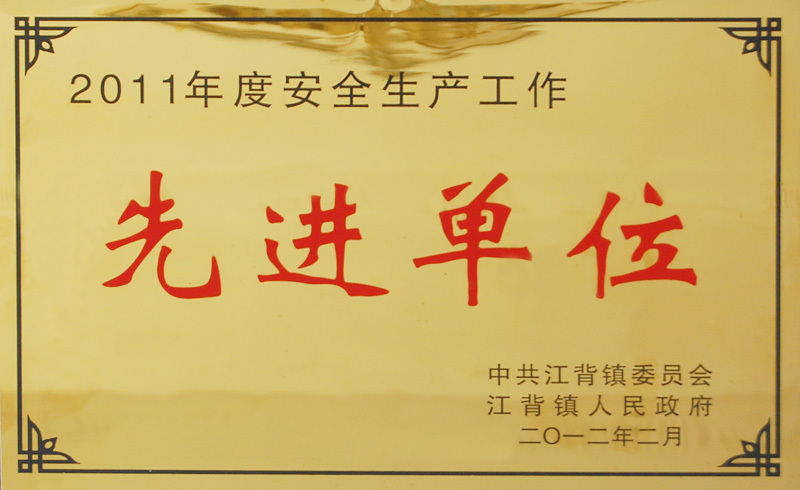 2011年度安全生产工作
先进单位
中共江背镇委员会
江背镇人民政府
二〇一二年二月